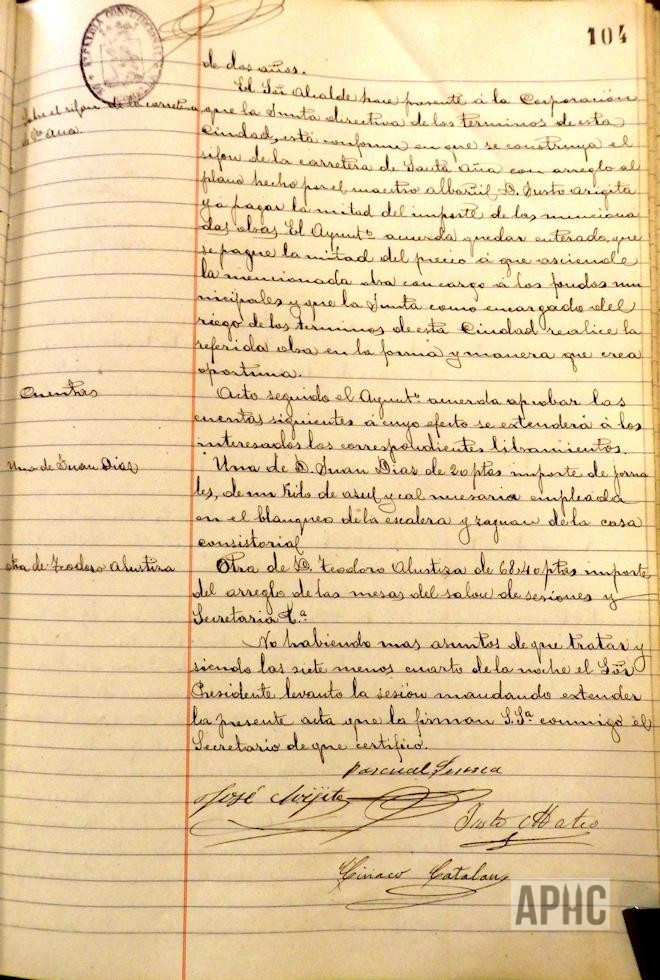 104
ALCALDIA CONSTITUCIONAL
de dos años.
El Sñr Alcalde hace presente á la Corporación
Sobre el sifon de la carretera
de Sta Ana.
que la Junta directiva de los terminos de esta
Ciudad, está conforme en que se construya el
sifon de la carretera de Santa Ana con arreglo al
plano hecho por el maestro Albañil D. Justo Arigita
y á pagar la mitad del importe de las menciona
das obras. El Ayuntº acuerda quedar enterado, que
se pague la mitad del precio á que asciende
la mencionada obra con cargo á los fondos mu
nicipales y que la Junta como encargado del
riego de los terminos de esta Ciudad realice la
referida obra en la forma y manera que crea
oportuna.
Cuentas
Acto seguido el Ayuntº acuerda aprobar las
cuentas siguientes á cuyo efecto se extenderá á los
interesados los correspondientes libramientos.
Una de Juan Dias
Una de D. Juan Dias de 20 ptas importe de jorna
les, de un kilo de asul y cal necesaria empleada
en el blanqueo de la escalera y zaguan de la casa
consistorial
otra de Teodoro Alustiza
Otra de D. Teodoro Alustiza de 68,40 ptas importe
del arreglo de las mesas del salon de sesiones y
Secretaria &.ª
No habiendo mas asuntos de que tratar y
siendo las siete menos cuarto de la noche el Sñr
Presidente levanto la sesión mandando extender
la presente acta que la firman S.Sª conmigo el
Secretario de que certifico.
Pascual
José
Justo Mateo
Ciriaco Catalan
APHC